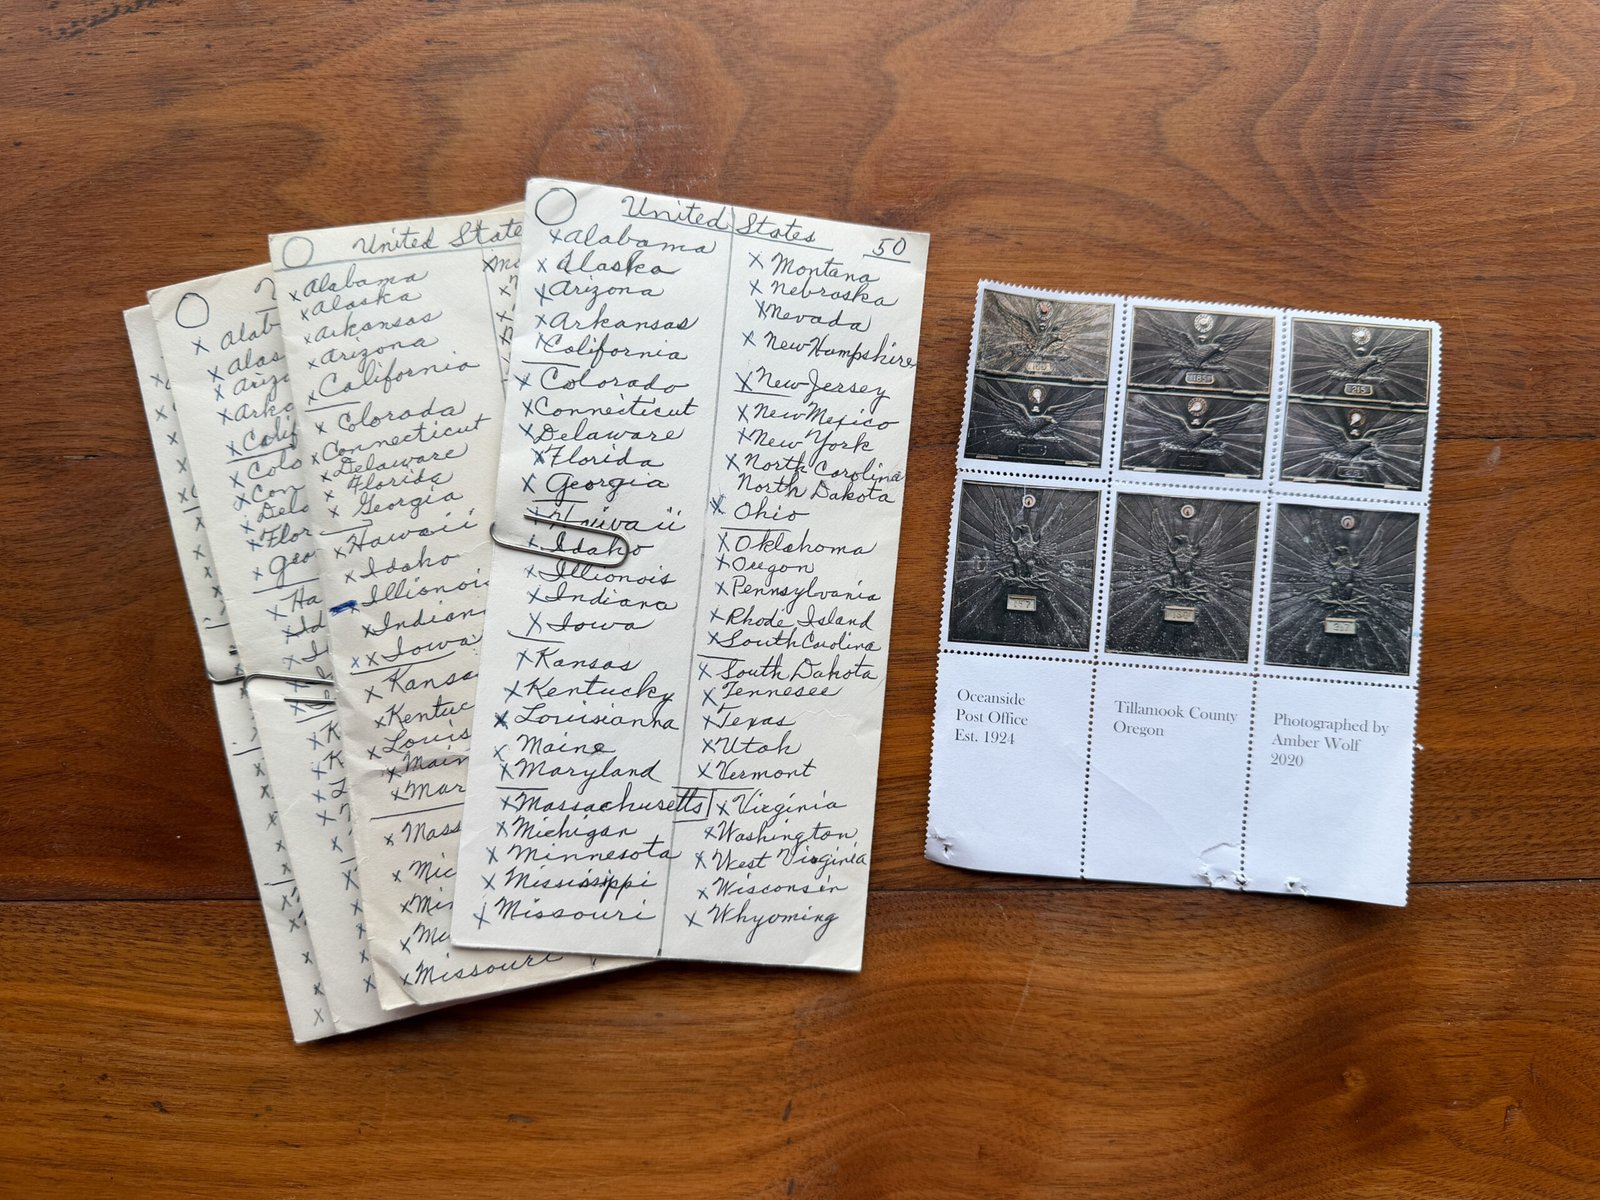 United States
50
x Alabama
x Alaska
x Arizona
x Arkansas
x California
x Colorado
x Connecticut
x Delaware
x Florida
x Georgia
x Hawaii
x Idaho
x Illionois
x Indiana
x Iowa
x Kansas
x Kentucky
x Louisianna
x Maine
x Maryland
x Massachusetts
x Michigan
x Minnesota
x Mississippi
x Missouri
x Montana
x Nebraska
x Nevada
x New Hampshire
x New Jersey
x New Mexico
x New York
x North Carolina
North Dakota
x Ohio
x Oklahoma
x Oregon
x Pennsylvania
x Rhode Island
x South Carolina
x South Dakota
x Tennesee
x Texas
x Utah
x Vermont
x Virginia
x Washington
x West Virginia
x Wisconsin
x Whyoming
United State
x Alabama
x Alaska
x Arkansas
x Arizona
x California
x Colorada
x Connecticut
x Delaware
x Florida
x Georgia
x Hawaii
x Idaho
x Illionoi
x Indian
x x Iowa
x Kansa
x Kentuc
x Louis
x Main
x Mar
x Mass
x Mic
x Mi
x Mi
x Missouri
x Alab
x Alas
x Ariz
x Arko
x Calif
x Colo
x Con
x Dela
x Flor
x Geo
x Ha
x Id
Oceanside
Post Office
Est. 1924
Tillamook County
Oregon
Photographed by
Amber Wolf
2020
185
215
217